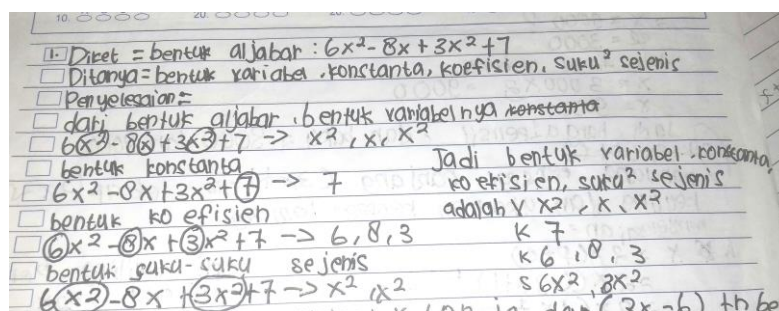 10.
20.
1. Diket = bentuk aljabar : 6x² - 8x + 3x² + 7
Ditanya = bentuk variabel, konstanta, koefisien, suku² sejenis
Penyelesaian =
dari bentuk aljabar, bentuk variabelnya konstanta
6x² - 8x + 3x² + 7 -> x², x, x²
bentuk konstanta
6x² - 8x + 3x² + 7 -> 7
bentuk koefisien
6x² - 8x + 3x² + 7 -> 6, 8, 3
bentuk suku-suku sejenis
6x2 - 8x + 3x² + 7 -> x², x²
Jadi bentuk variabel, konstanta,
koefisien, suku² sejenis
adalah V x2, x, x²
K 7
K 6, 8, 3
S 6x², 3x²